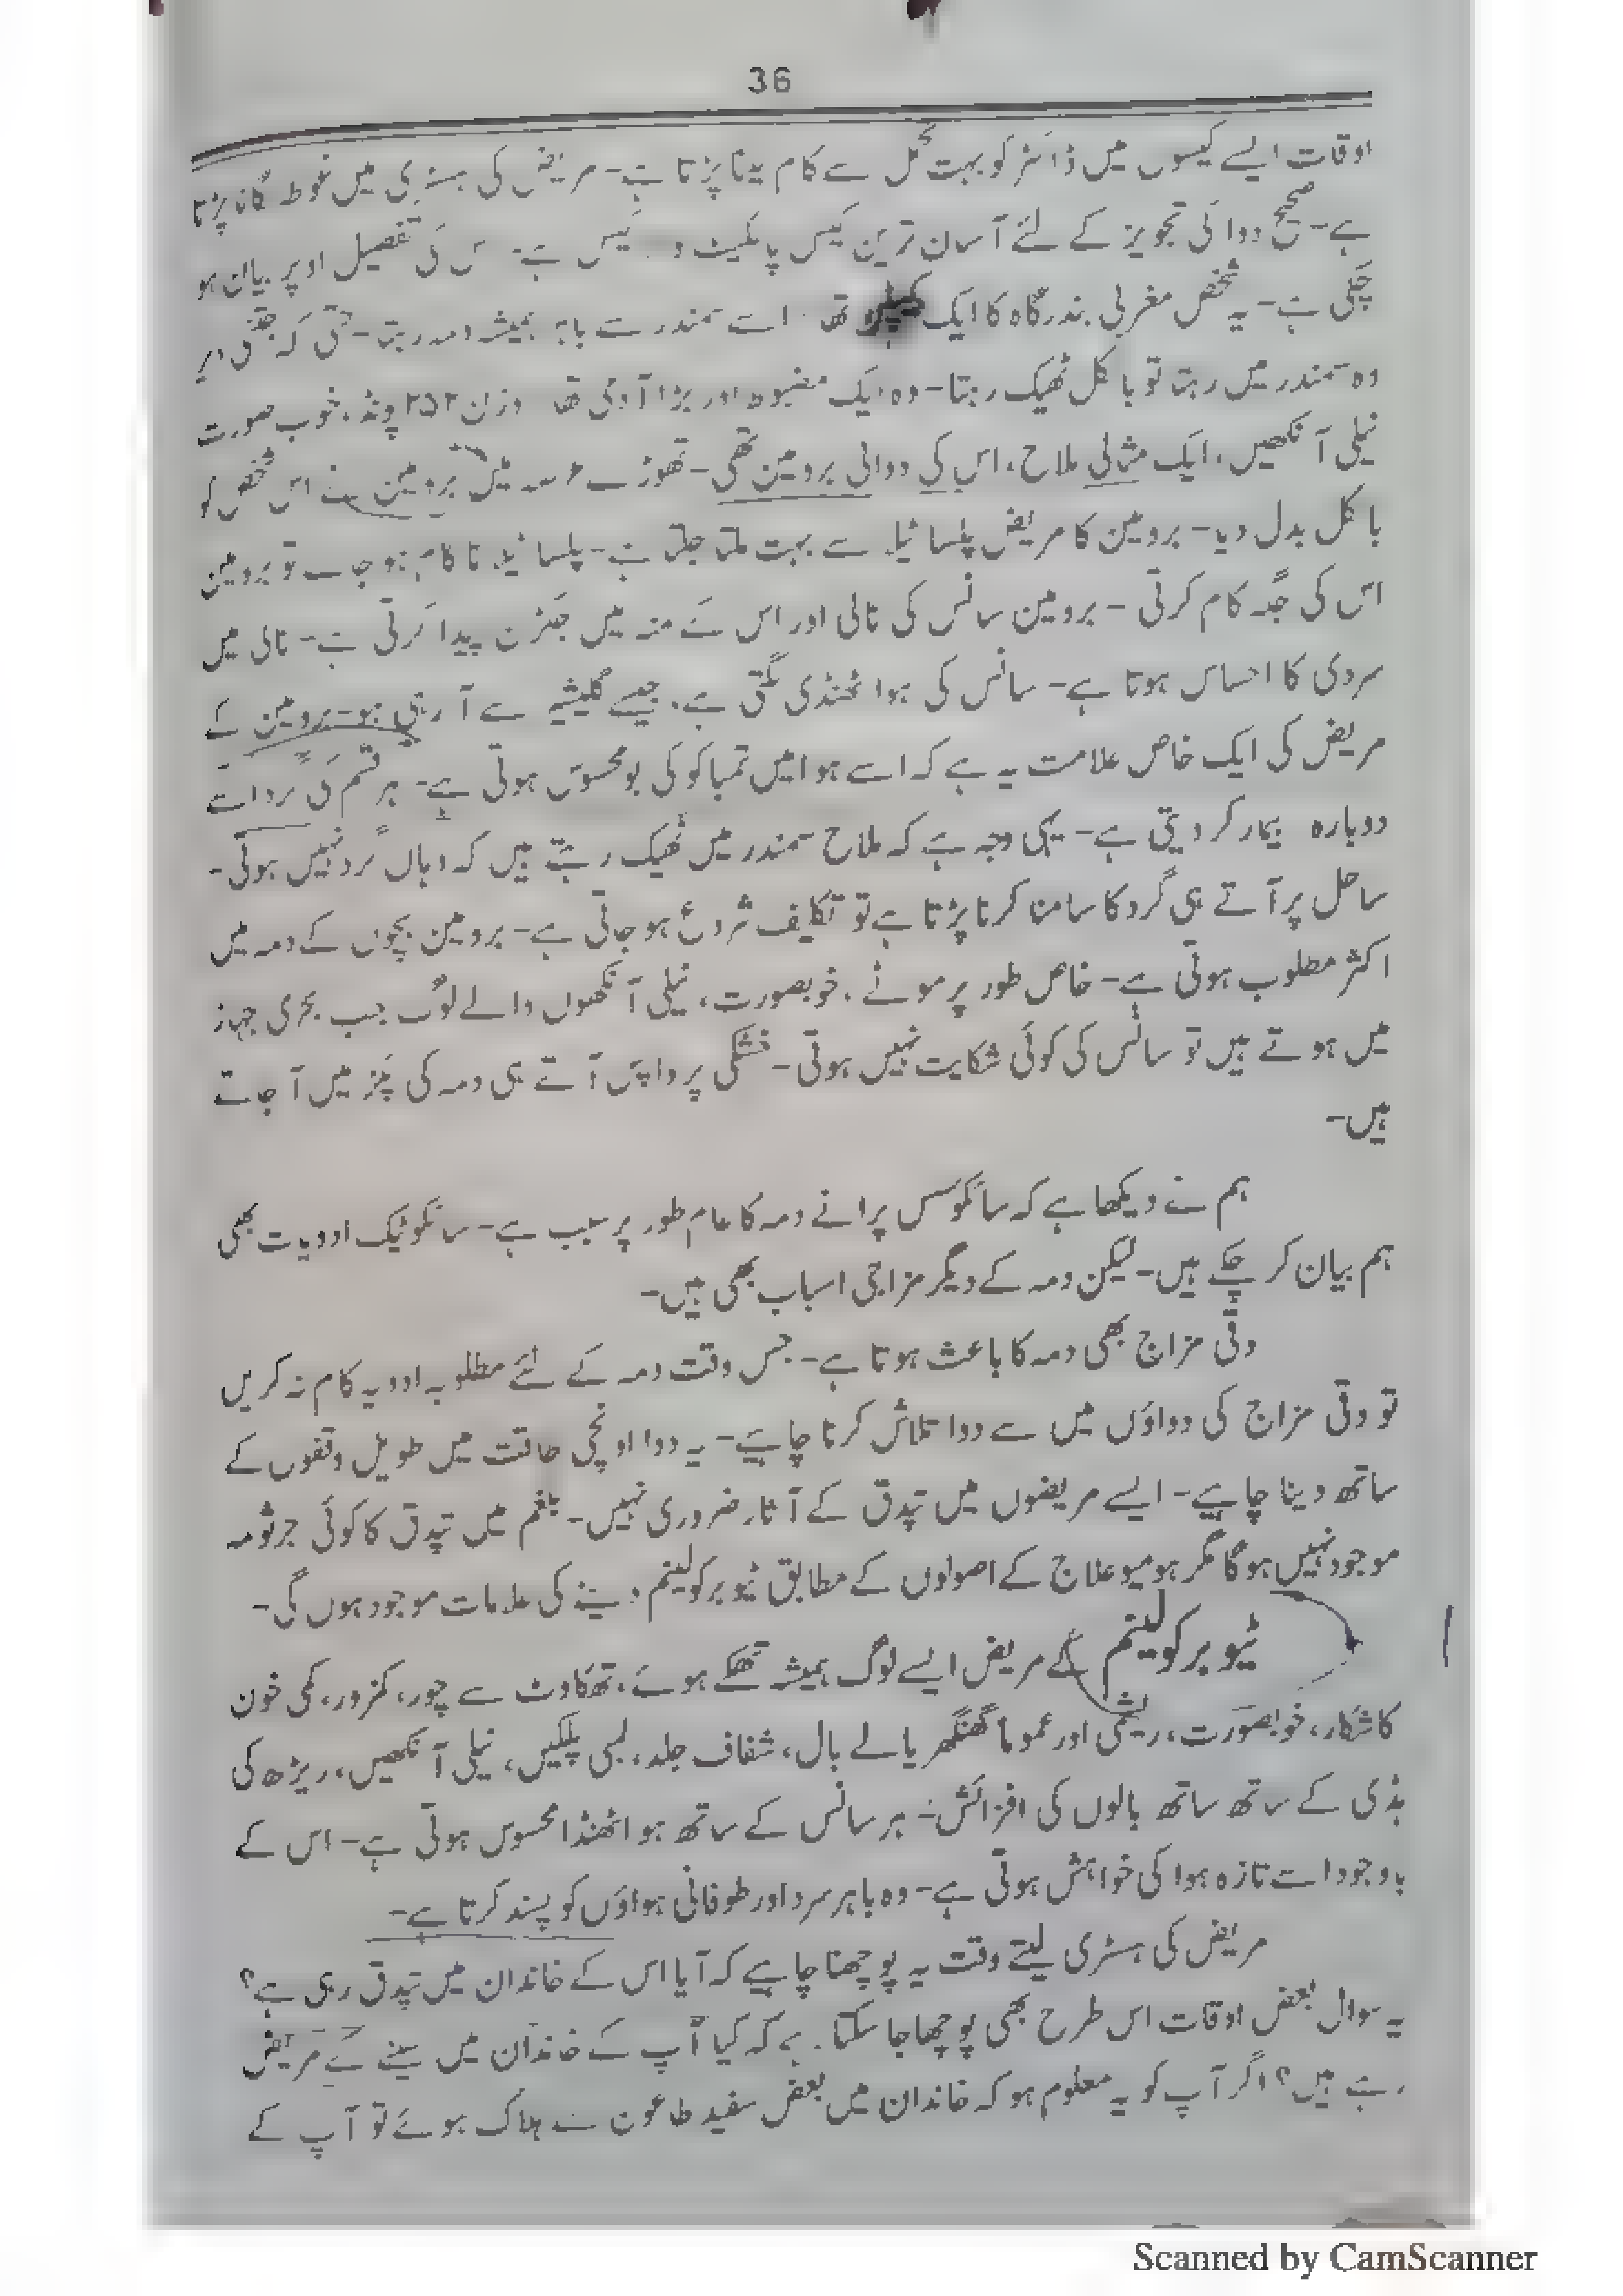 36
اوقات ایسے کیسوں میں ڈاکٹر کو بہت تحمل سے کام لینا پڑتا ہے۔ مریض کی ہسٹری میں غوطہ لگانا پڑتا
ہے۔ صحیح دوائی تجویز کے لئے آسان ترین کیس پاکٹ کیس ہے۔ اس کی تفصیل اوپر بیان ہو
چکی ہے۔ یہ شخص مغربی بندرگاہ کا ایک تھا۔ اسے سمندر سے باہر ہمیشہ دمہ رہتا۔ حتیٰ کہ جتنی دیر
وہ سمندر میں رہتا تو بالکل ٹھیک رہتا۔ وہ ایک مضبوط اور بڑا آدمی تھا وزن ۲۵۲ پونڈ، خوب صورت
نیلی آنکھیں، ایک مثالی ملاح، اس کی دوائی برومین تھی۔ تھوڑے عرصہ میں برومین نے اس شخص کو
بالکل بدل دیا۔ برومین کا مریض پلسا ٹیلا سے بہت ملتا جلتا ہے۔ پلسا ٹیلا ناکام ہو جائے تو برومین
اس کی جگہ کام کرتی۔ برومین سانس کی نالی اور اس کے منہ میں جکڑن پیدا کرتی ہے۔ نالی میں
سردی کا احساس ہوتا ہے۔ سانس کی ہوا ٹھنڈی لگتی ہے، جیسے گلیشیر سے آ رہی ہو۔ برومین کے
مریض کی ایک خاص علامت یہ ہے کہ اسے ہوا میں تمباکو کی بو محسوس ہوتی ہے۔ ہر قسم کی گرد اسے
دوبارہ بیمار کر دیتی ہے۔ یہی وجہ ہے کہ ملاح سمندر میں ٹھیک رہتے ہیں کہ وہاں گرد نہیں ہوتی۔
ساحل پر آتے ہی گرد کا سامنا کرنا پڑتا ہے تو تکلیف شروع ہو جاتی ہے۔ برومین بچوں کے دمہ میں
اکثر مطلوب ہوتی ہے۔ خاص طور پر موٹے، خوبصورت، نیلی آنکھوں والے لوگ جب بحری جہاز
میں ہوتے ہیں تو سانس کی کوئی شکایت نہیں ہوتی۔ خشکی پر واپس آتے ہی دمہ کی پکڑ میں آ جاتے
ہیں۔
ہم نے دیکھا ہے کہ سائکوسس پرانے دمہ کا عام طور پر سبب ہے۔ سائکوٹیک ادویات بھی
ہم بیان کر چکے ہیں۔ لیکن دمہ کے دیگر مزاجی اسباب بھی ہیں۔
دقی مزاج بھی دمہ کا باعث ہوتا ہے۔ جس وقت دمہ کے لئے مطلوبہ ادویہ کام نہ کریں
تو دقی مزاج کی دواؤں میں سے دوا تلاش کرنا چاہیے۔ یہ دوا اونچی طاقت میں طویل وقفوں کے
ساتھ دینا چاہیے۔ ایسے مریضوں میں تپدق کے آثار ضروری نہیں۔ بلغم میں تپدق کا کوئی جرثومہ
موجود نہیں ہوگا مگر ہومیو علاج کے اصولوں کے مطابق ٹیوبرکولینم دینے کی علامات موجود ہوں گی۔
ٹیوبرکولینم کے مریض ایسے لوگ ہمیشہ تھکے ہوئے، تھکاوٹ سے چور، کمزور، کمی خون
کا شکار، خوبصورت، ریشمی اور عموما گھنگھریالے بال، شفاف جلد، لمبی پلکیں، نیلی آنکھیں، ریڑھ کی
ہڈی کے ساتھ ساتھ بالوں کی افزائش۔ ہر سانس کے ساتھ ہوا ٹھنڈا محسوس ہوتی ہے۔ اس کے
باوجود اسے تازہ ہوا کی خواہش ہوتی ہے۔ وہ باہر سرد اور طوفانی ہواؤں کو پسند کرتا ہے۔
مریض کی ہسٹری لیتے وقت یہ پوچھنا چاہیے کہ آیا اس کے خاندان میں تپدق رہی ہے؟
یہ سوال بعض اوقات اس طرح بھی پوچھا جا سکتا ہے کہ کیا آپ کے خاندان میں سینے کے مریض
رہے ہیں؟ اگر آپ کو یہ معلوم ہو کہ خاندان میں بعض سفید طاعون سے ہلاک ہوئے تو آپ کے
Scanned by CamScanner